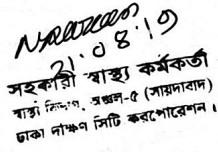 21.08.19
সহকারী স্বাস্থ্য কর্মকর্তা
স্বাস্থ্য বিভাগ, অঞ্চল-৫ (সায়দাবাদ)
ঢাকা দক্ষিণ সিটি করপোরেশন।